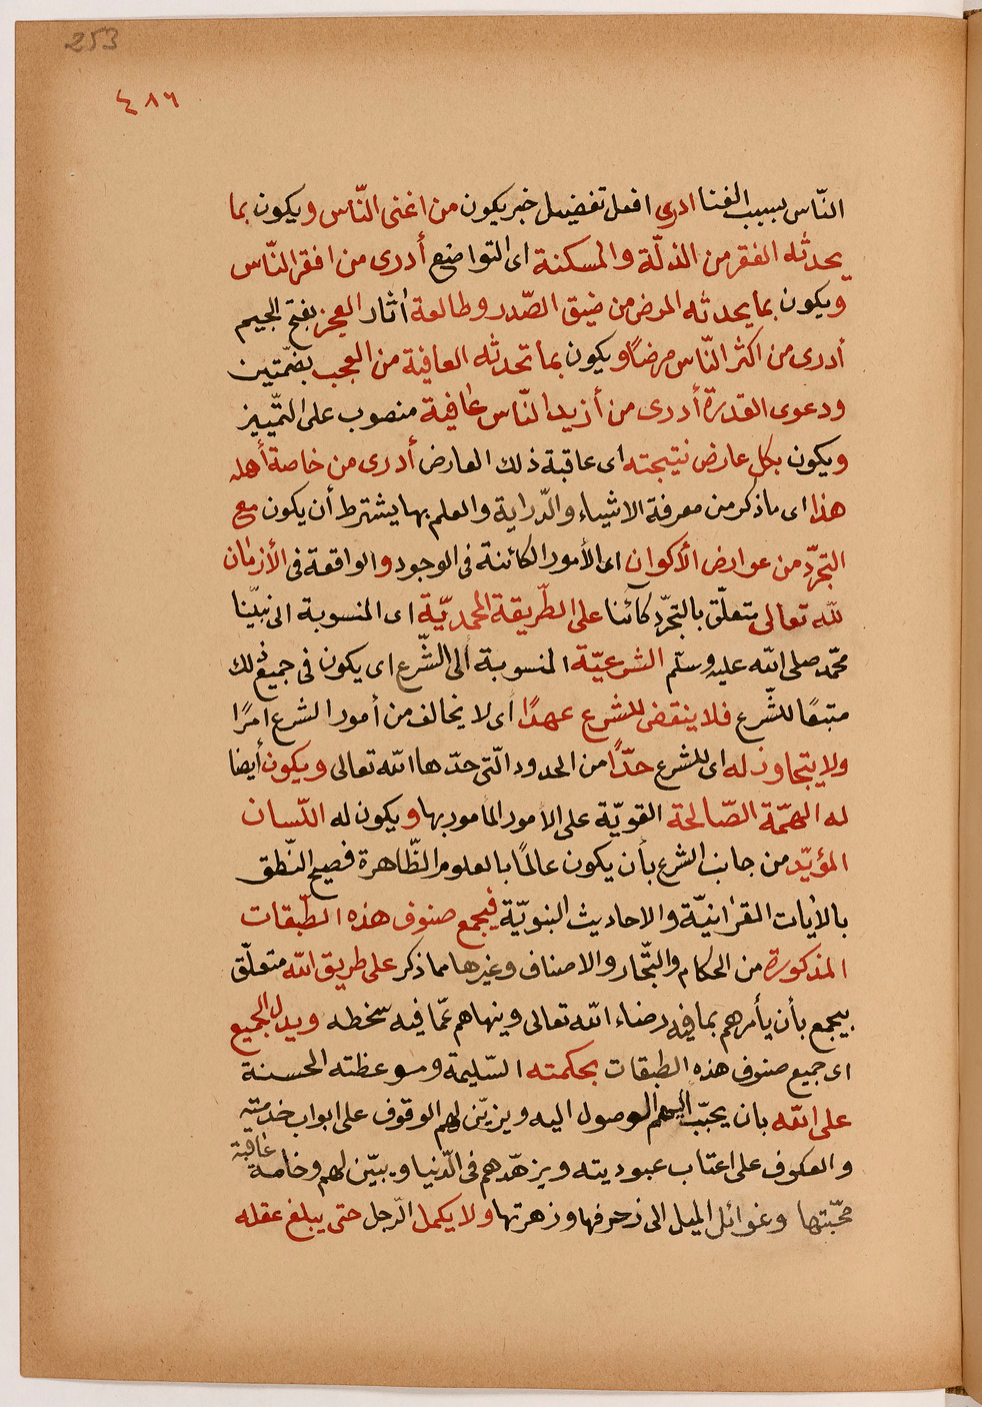 253
٤٨٦
النّاس بسبب الغنا ادرى افعل تفضيل خبر يكون من اغنى النّاس ويكون بما
يحدثه الفقر من الذلّة والمسكنة اى التواضع أدرى من افقر النّاس
ويكون بما يحدثه المرض من ضيق الصّدر وطالعة أثار العجز بفتح الجيم
أدرى من اكثر النّاس مرضًا ويكون بما تحدثه العافية من العجب بضمّتين
ودعوى القدرة أدرى من أزيد النّاس عافية منصوب على التّمييز
ويكون بكل عارض نتيجته اى عاقبة ذلك العارض أدرى من خاصة أهله
هذا اى ما ذكر من معرفة الاشياء والدّراية والعلم بها يشترط أن يكون مع
التجرّد من عوارض الأكوان اى الأمور الكائنة فى الوجود والواقعة فى الأزمان
للّه تعالى متعلّق بالتجرّد كائنا على الطّريقة المحمديّة اى المنسوبة الى نبيّنا
محمّد صلى اللّه عليه وسلّم الشرعيّة المنسوبة الى الشّرع اى يكون فى جميع ذلك
متبعًا للشّرع فلا ينقض للشرع عهدًا أى لا يخالف من أمور الشرع امرًا
ولا يتجاوز له اى للشرع حدًّا من الحدود الّتى حدّها اللّه تعالى ويكون أيضا
له الهمّة الصّالحة القويّة على الامور المأمور بها ويكون له اللّسان
المؤيّد من جانب الشرع بأن يكون عالمًا بالعلوم الظّاهرة فصيح النّطق
بالأيات القرأنيّة والاحاديث النبويّة فيجمع صنوف هذه الطّبقات
المذكورة من الحكام والتّجار والاصناف وغيرها مما ذكر على طريق اللّه متعلّق
بيجمع بأن يأمرهم بما فيه رضاء اللّه تعالى وينهاهم عمّا فيه سخطه ويدل الجميع
اى جميع صنوف هذه الطبقات بحكمته السّليمة وموعظته الحسنة
على اللّه بان يحبّب اليهم الوصول اليه ويزيّن لهم الوقوف على ابواب خدمته
والعكوف على اعتاب عبوديته ويزهّدهم فى الدّنيا ويبيّن لهم وخامة عاقبة
محبّتها وغوائل الميل الى زخرفها وزهرتها ولا يكمل الرّجل حتى يبلغ عقله